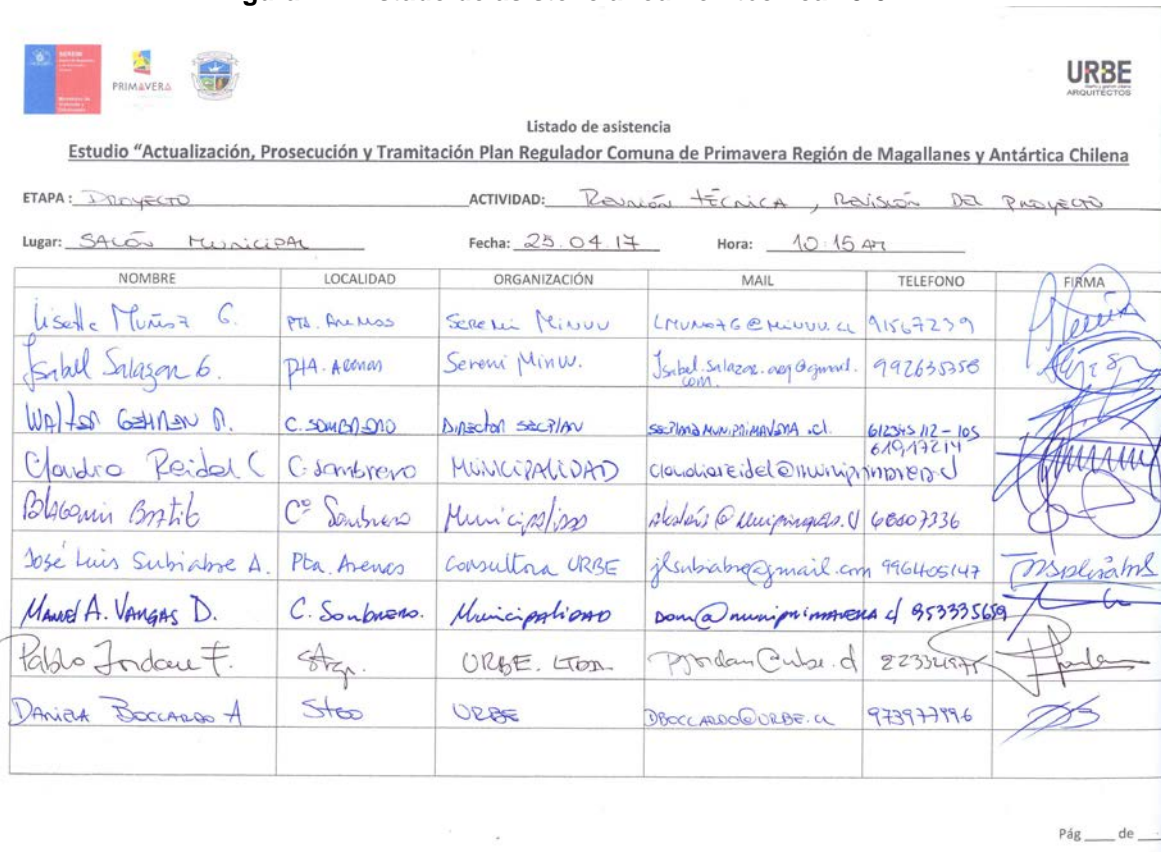 SEREMI
PRIMAVERA
URBE
ARQUITECTOS
Listado de asistencia
Estudio "Actualización, Prosecución y Tramitación Plan Regulador Comuna de Primavera Región de Magallanes y Antártica Chilena
ETAPA: PROYECTO ACTIVIDAD: REUNIÓN TÉCNICA, REVISIÓN DEL PROYECTO
Lugar: SALÓN MUNICIPAL Fecha: 25.04.17 Hora: 10:15 AM
NOMBRE LOCALIDAD ORGANIZACIÓN MAIL TELEFONO FIRMA
Lisette Muñoz G. PTA. ARENAS SEREMI MINVU LMUNOZG@MINVU.CL 91567239
Isabel Salazar G. PTA. Arenas Seremi Minvu. Isabel.salazar.arq@gmail.com. 992635358
WALTER C. SOMBRERO DIRECTOR SECPLAN 612345112-105
Claudio Reidel C C. Sombrero MUNICIPALIDAD claudioreidel@muniprimavera.cl 61917214
Cº Sombrero Municipalidad 68607336
José Luis Subiabre A. Pta. Arenas Consultora URBE jlsubiabre@gmail.com 996405147
MANUEL A. VARGAS D. C. Sombrero. Municipalidad Dom@muniprimavera.cl 953335659
Pablo Jordan F. Stgo. URBE. LTDA. Pjordan@urbe.cl
DANIELA BOCCARDO A STGO URBE DBOCCARDO@URBE.CL 973977996
Pág ____ de ___